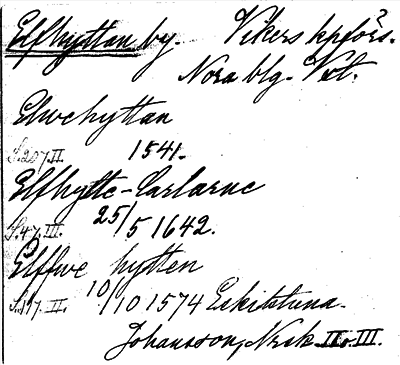 Elfhyttan by. Vikers kpförs.
Nora blg. Vstl.
Elwehyttan
S. 207. II. 1541.
Elfhytte-Carlarne
S. 47. III. 25/5 1642.
Elffwe hytten
S. 117. II. 10/10 1574 Eskilstuna.
Johansson, Nrsk II o. III.